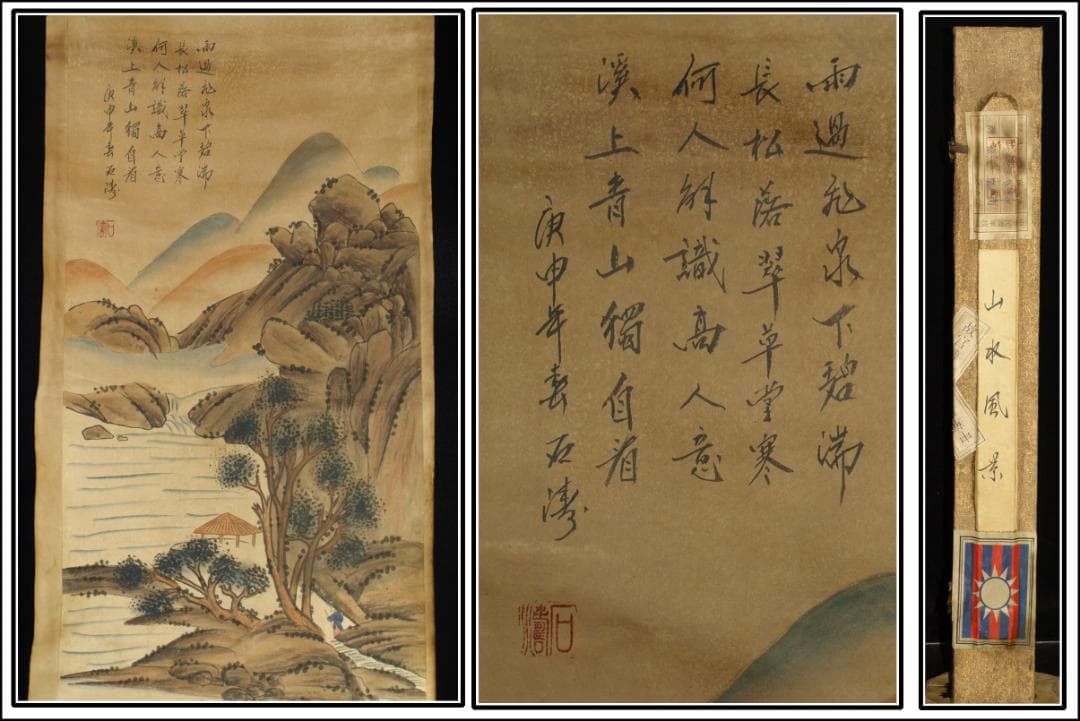 雨過飛泉下碧湍
長松落翠草堂寒
何人解識高人意
溪上青山獨自看
庚申年春石濤
石濤
雨過飛泉下碧湍
長松落翠草堂寒
何人解識高人意
溪上青山獨自看
庚申年春石濤
石濤
山水風景